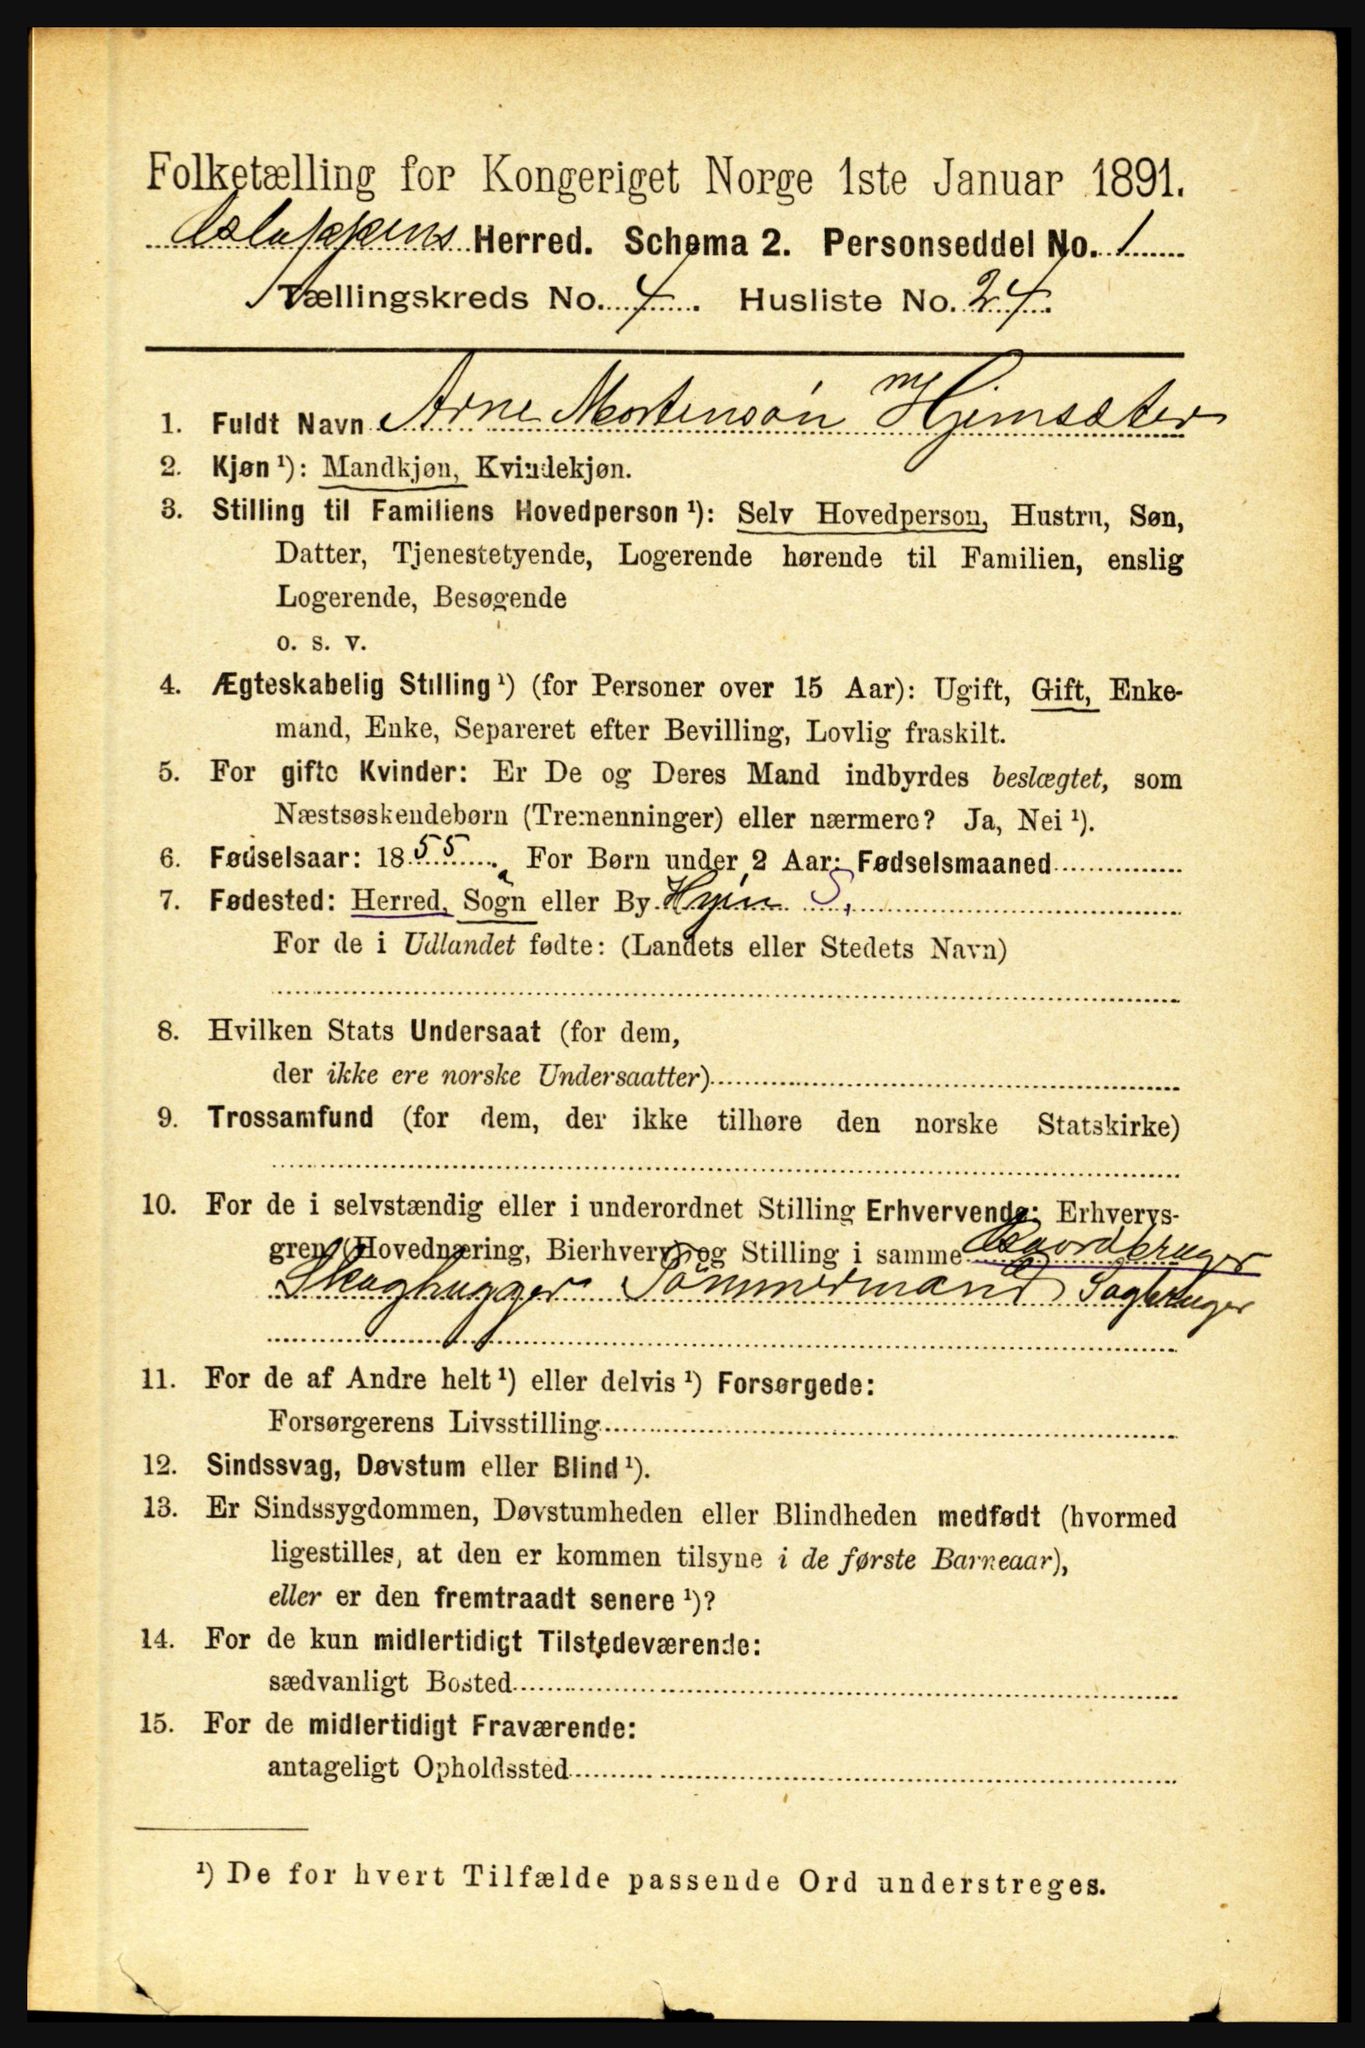 Folketælling for Kongeriget Norge 1ste Januar 1891.
Herred. Schema 2. Personseddel No. 1
Tællingskreds No. 4. Husliste No. 24.
m
1. Fuldt Navn Arne Mortensøn Hjemsæter
2. Kjøn ¹): Mandkjøn, Kvindekjøn.
3. Stilling til Familiens Hovedperson ¹): Selv Hovedperson, Hustru, Søn,
Datter, Tjenestetyende, Logerende hørende til Familien, enslig
Logerende, Besøgende
o. s. v.
4. Ægteskabelig Stilling ¹) (for Personer over 15 Aar): Ugift, Gift, Enke-
mand, Enke, Separeret efter Bevilling, Lovlig fraskilt.
5. For gifte Kvinder: Er De og Deres Mand indbyrdes beslægtet, som
Næstsøskendebørn (Tremenninger) eller nærmere? Ja, Nei ¹).
6. Fødselsaar: 1855. For Børn under 2 Aar: Fødselsmaaned
7. Fødested: Herred, Sogn eller By Hyen S.
For de i Udlandet fødte: (Landets eller Stedets Navn)
8. Hvilken Stats Undersaat (for dem,
der ikke ere norske Undersaatter)
9. Trossamfund (for dem, der ikke tilhøre den norske Statskirke)
10. For de i selvstændig eller i underordnet Stilling Erhvervende: Erhvervs-
gren (Hovednæring, Bierhverv) og Stilling i samme Gaardbruger
Skoghugger Tömmermand Sagbruger
11. For de af Andre helt ¹) eller delvis ¹) Forsørgede:
Forsørgerens Livsstilling
12. Sindssvag, Døvstum eller Blind ¹).
13. Er Sindssygdommen, Døvstumheden eller Blindheden medfødt (hvormed
ligestilles, at den er kommen tilsyne i de første Barneaar),
eller er den fremtraadt senere ¹)?
14. For de kun midlertidigt Tilstedeværende:
sædvanligt Bosted
15. For de midlertidigt Fraværende:
antageligt Opholdssted
¹) De for hvert Tilfælde passende Ord understreges.